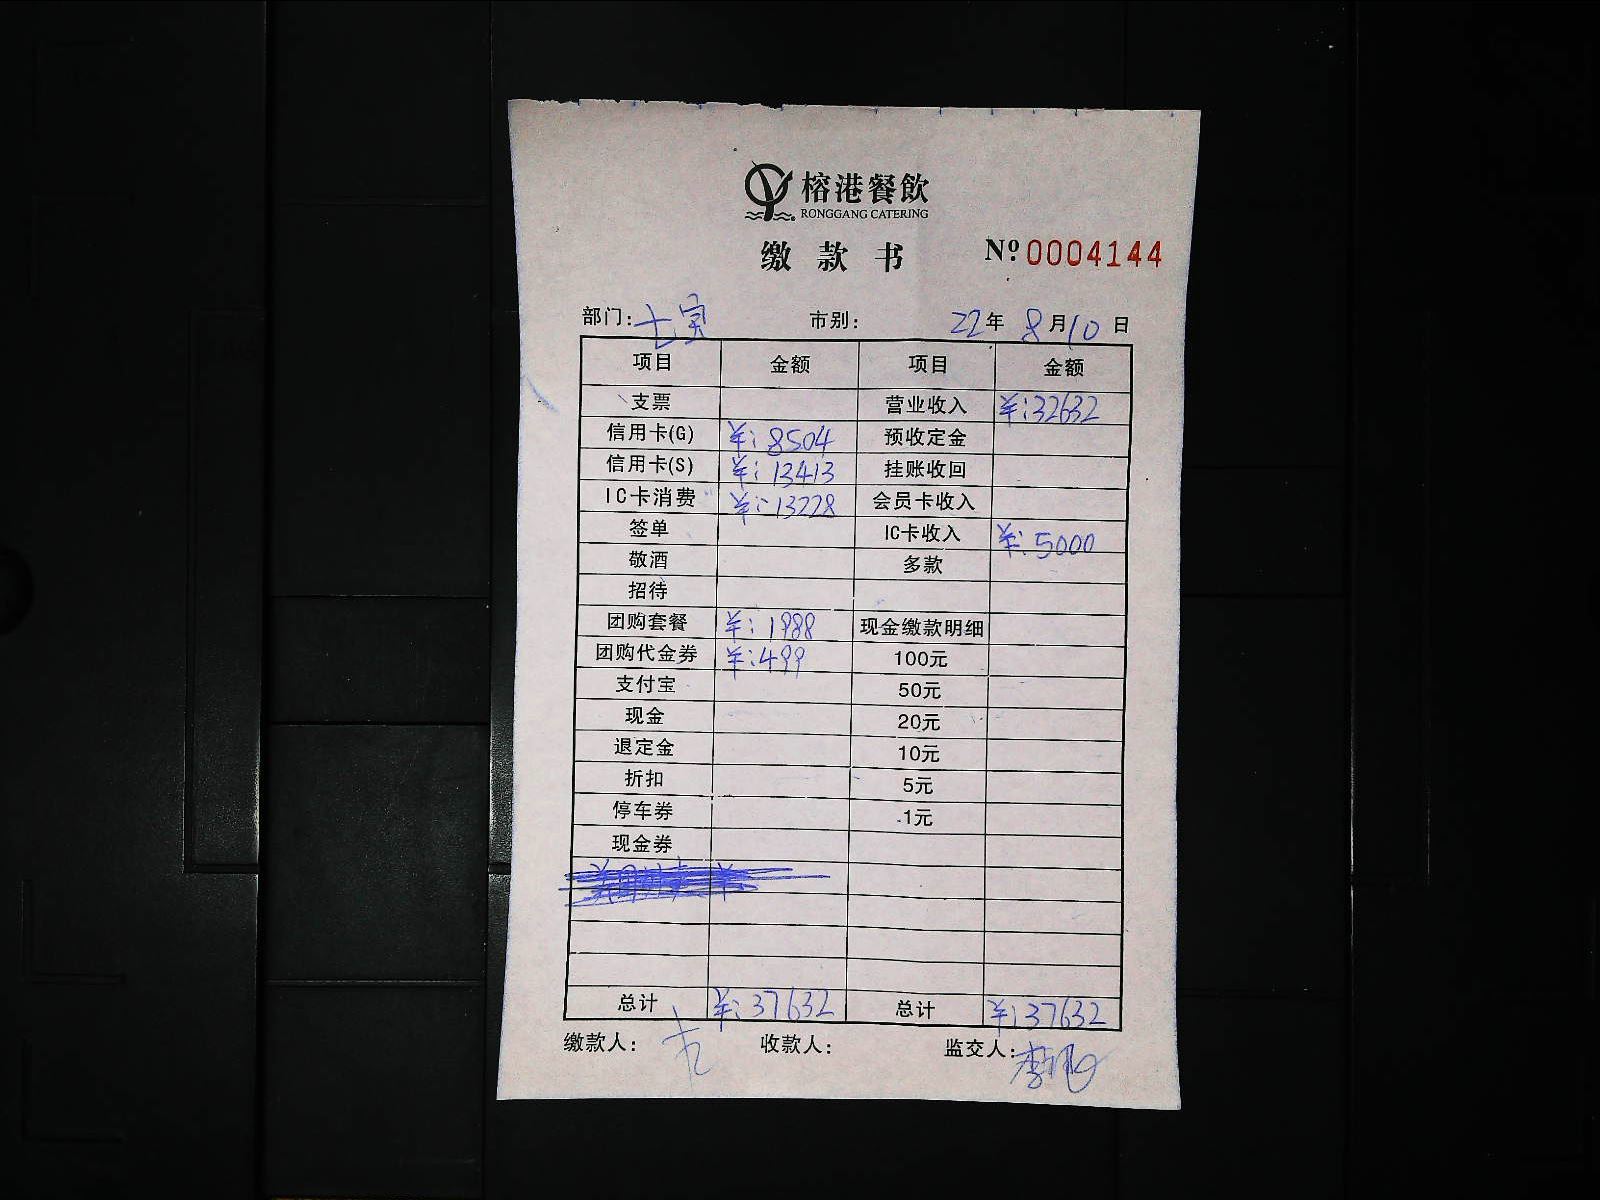 榕港餐飲
RONGGANG CATERING
缴款书 Nº 0004144
部门: 七宝 市别: 22年 8月10日
项目 金额 项目 金额
支票 营业收入 ¥:32632
信用卡(G) ¥:8504 预收定金
信用卡(S) ¥:13413 挂账收回
IC卡消费 ¥:13228 会员卡收入
签单 IC卡收入 ¥:5000
敬酒 多款
招待
团购套餐 ¥:1988 现金缴款明细
团购代金券 ¥:499 100元
支付宝 50元
现金 20元
退定金 10元
折扣 5元
停车券 1元
现金券
总计 ¥:37632 总计 ¥:37632
缴款人: 收款人: 监交人: